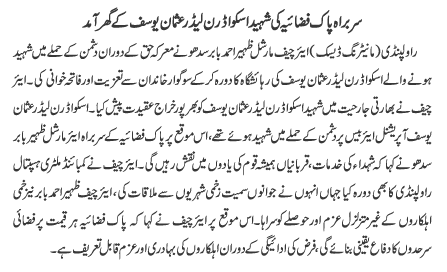 سربراہ پاک فضائیہ کی شہید اسکواڈرن لیڈر عثمان یوسف کے گھر آمد
راولپنڈی (مانیٹرنگ ڈیسک) ایئر چیف مارشل ظہیر احمد بابر سدھو نے معرکہ حق کے دوران دشمن کے حملے میں شہید
ہونے والے اسکواڈرن لیڈر عثمان یوسف کی رہائشگاہ کا دورہ کر کے سوگوار خاندان سے تعزیت اور فاتحہ خوانی کی۔ ایئر
چیف نے بھارتی جارحیت میں شہید اسکواڈرن لیڈر عثمان یوسف کو بھرپور خراج عقیدت پیش کیا۔ اسکواڈرن لیڈر عثمان
یوسف آپریشنل ایئر بیس پر دشمن کے حملے میں شہید ہوئے تھے، اس موقع پر پاک فضائیہ کے سربراہ ایئر مارشل ظہیر بابر
سدھو نے کہا کہ شہداء کی خدمات، قربانیاں ہمیشہ قوم کی یادوں میں نقش رہیں گی۔ ایئر چیف نے کمبائنڈ ملٹری ہسپتال
راولپنڈی کا بھی دورہ کیا جہاں انہوں نے جوانوں سمیت زخمی شہریوں سے ملاقات کی، ایئر چیف ظہیر احمد بابر نے زخمی
اہلکاروں کے غیر متزلزل عزم اور حوصلے کو سراہا۔ اس موقع پر ایئر چیف نے کہا کہ پاک فضائیہ ہر قیمت پر فضائی
سرحدوں کا دفاع یقینی بنائے گی، فرض کی ادائیگی کے دوران اہلکاروں کی بہادری اور عزم قابل تعریف ہے۔